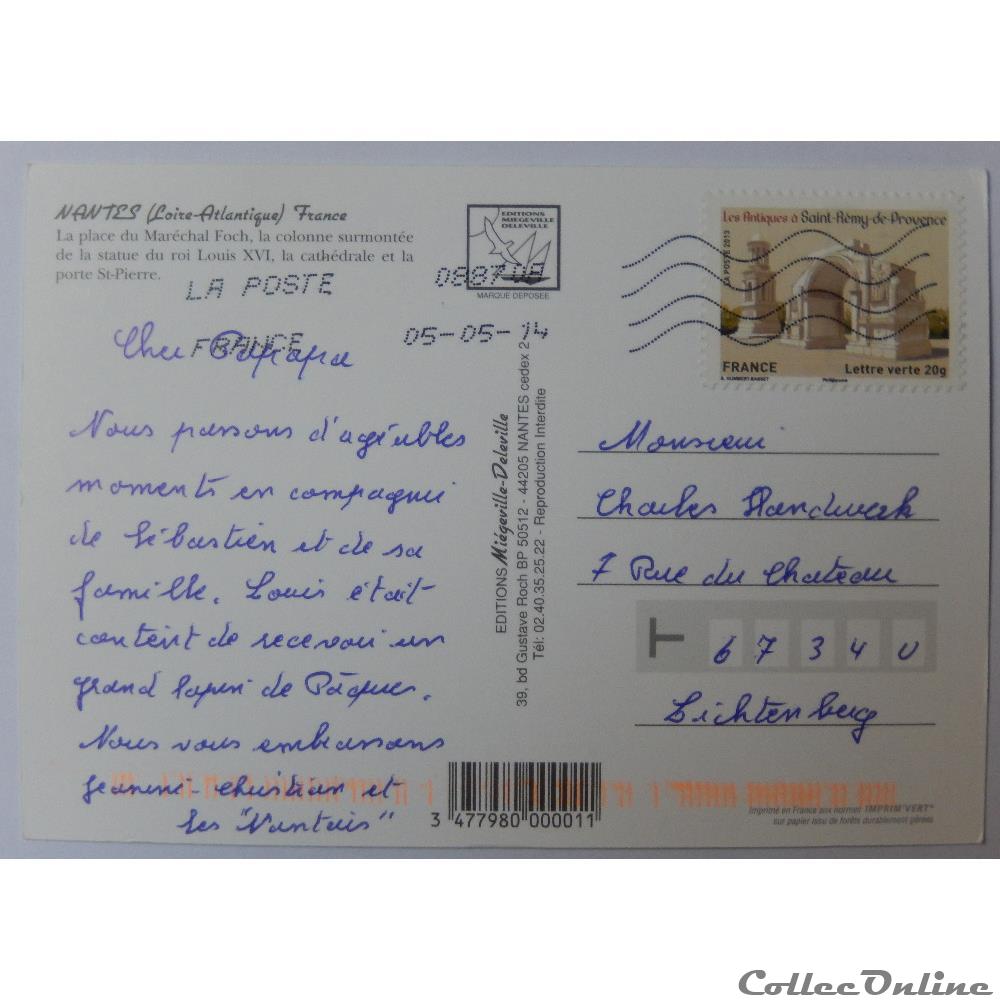 NANTES (Loire-Atlantique) France
La place du Maréchal Foch, la colonne surmontée
de la statue du roi Louis XVI, la cathédrale et la
porte St-Pierre.
LA POSTE
FRANCE
05-05-14
EDITIONS
MIEGEVILLE
DELEVILLE
MARQUE DEPOSEE
Les Antiques à Saint-Rémy-de-Provence
LA POSTE 2013
FRANCE
Lettre verte 20g
Cher Papapa
Nous passons d'agréables
moments en compagnie
de Sébastien et de sa
famille. Louis était
content de recevoir un
grand lapin de Pâques.
Nous vous embrassons
Jeanine - Christian et
les "Nantais"
EDITIONS Miégeville-Deleville
39, bd Gustave Roch BP 50512 - 44205 NANTES cedex 2
Tél: 02.40.35.25.22 - Reproduction Interdite
Monsieur
Charles Handwerk
7 Rue du Chateau
67340
Lichtenberg
3 477980 000011
Imprimé en France aux normes IMPRIM'VERT®
sur papier issu de forêts durablement gérées
CollecOnline